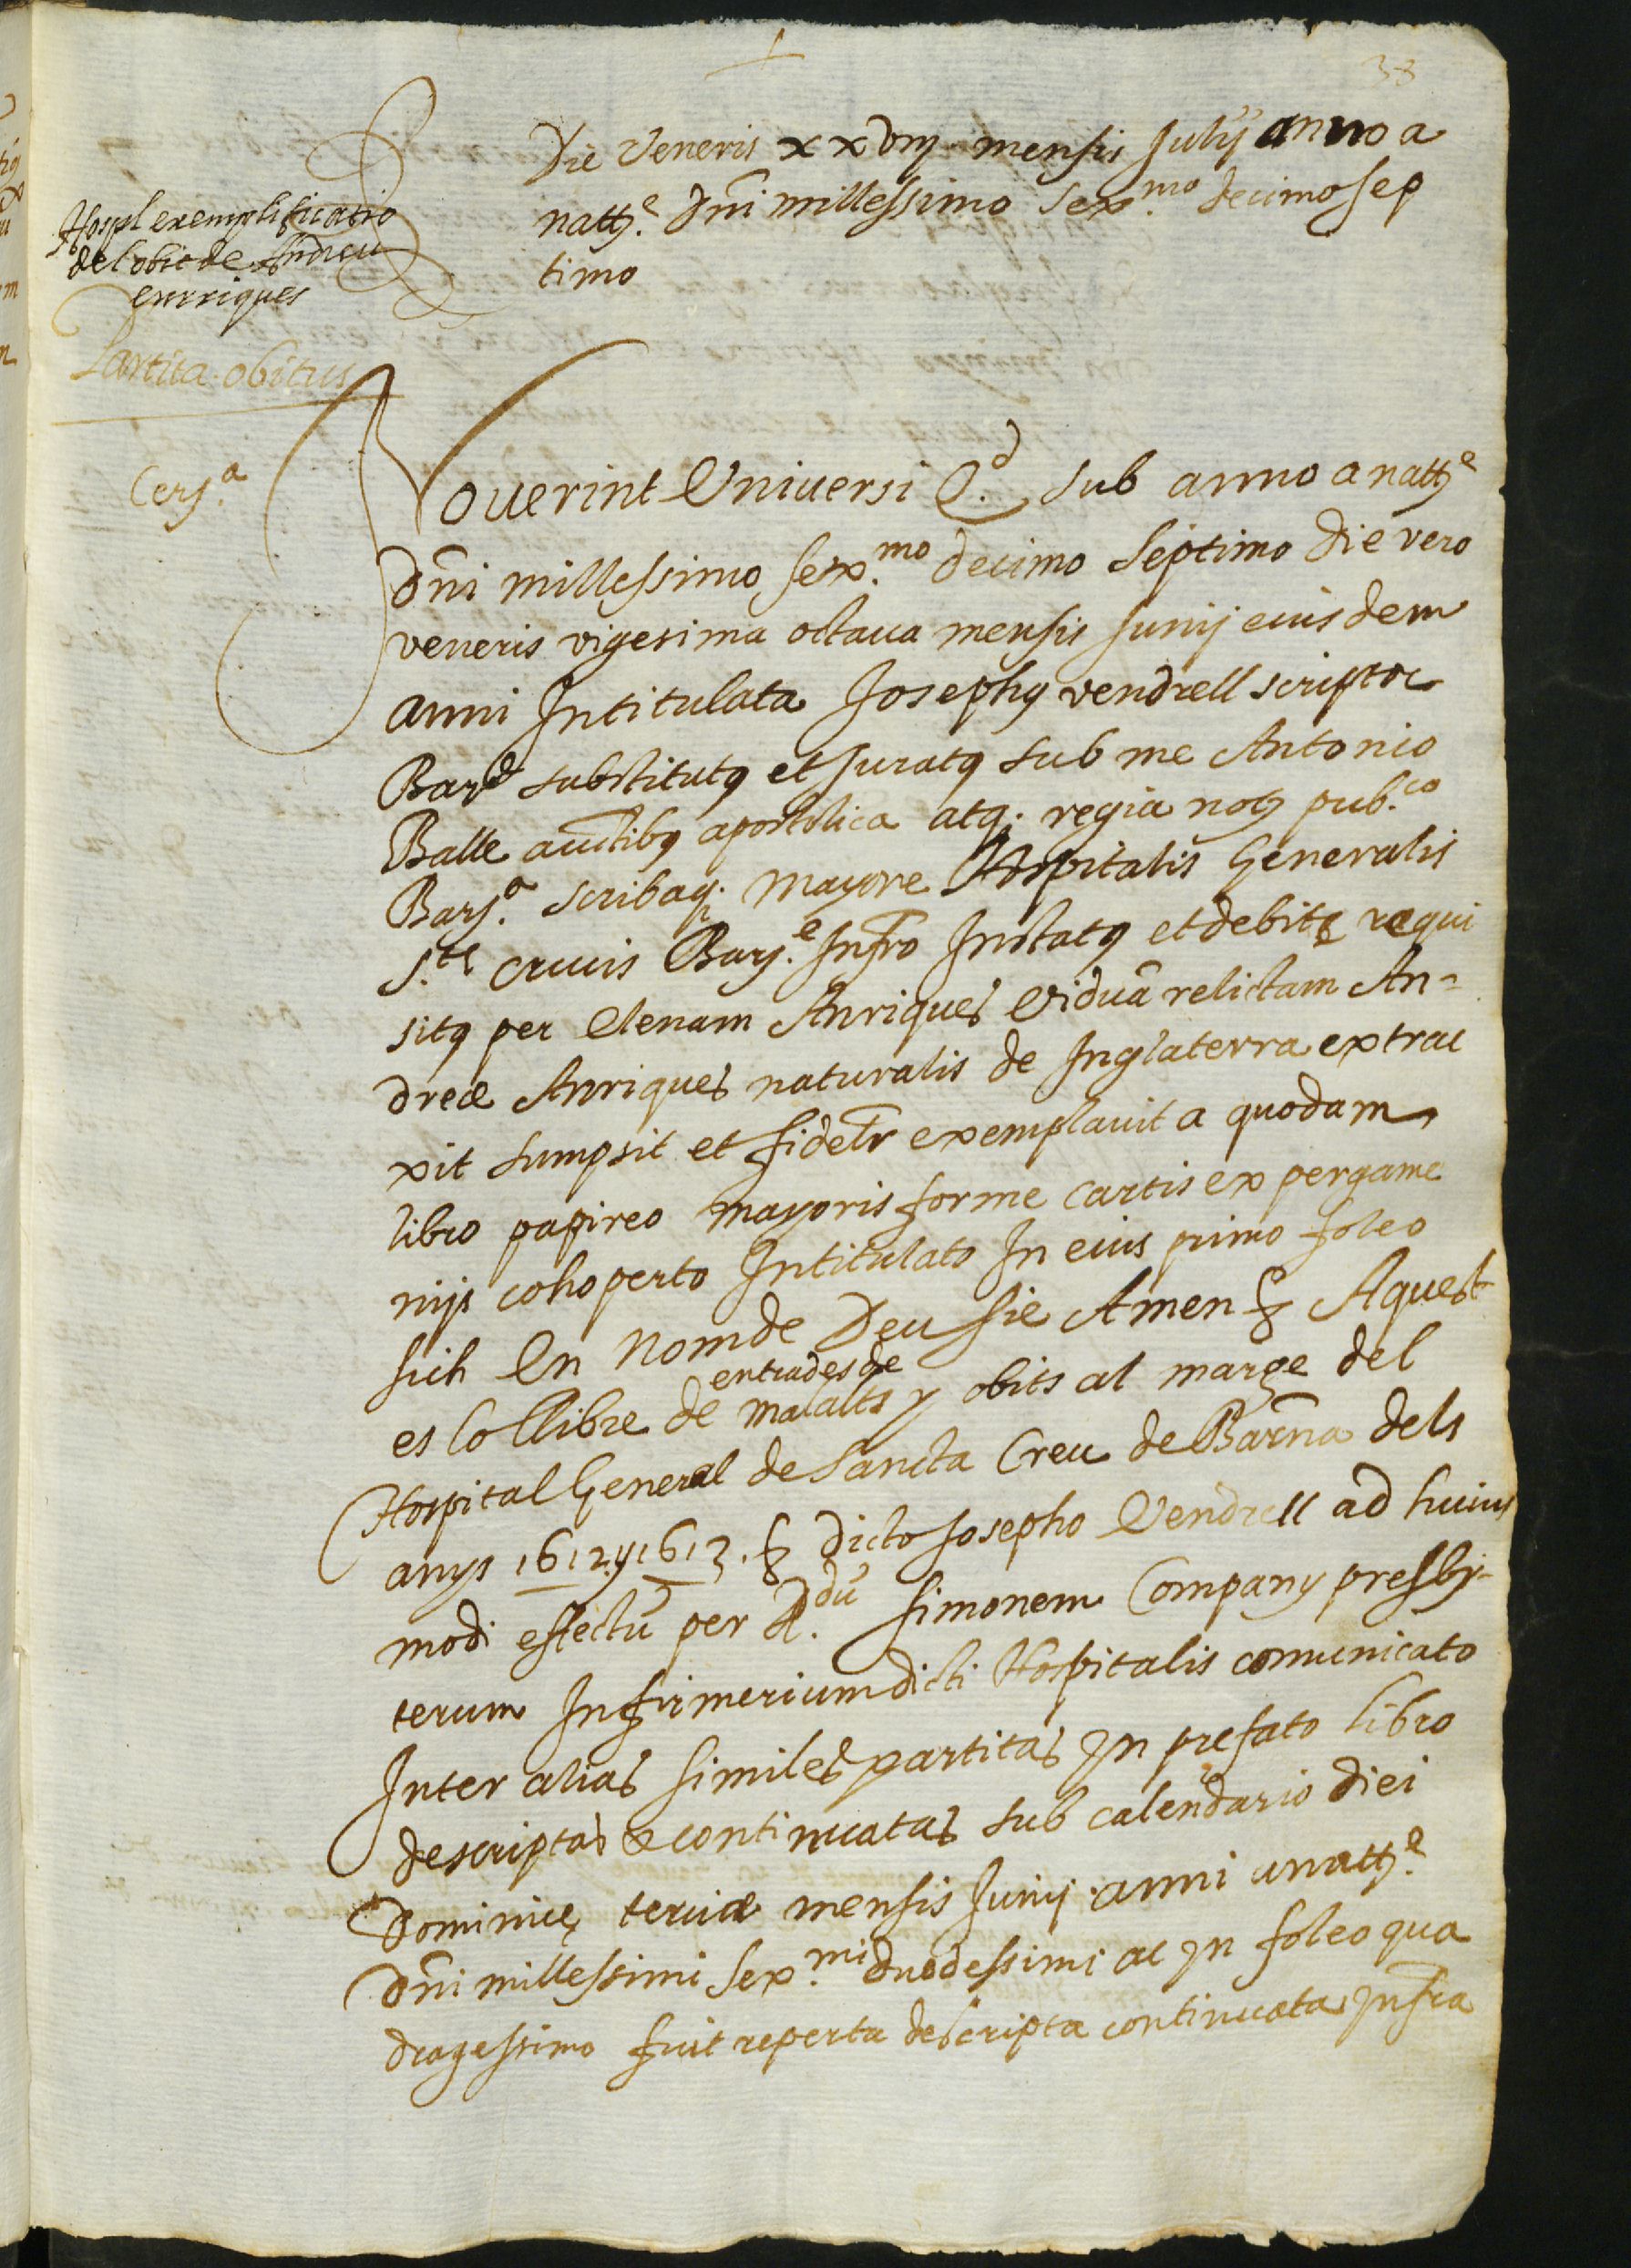 38
Die Veneris xxviij mensis Julij anno a
natte. Dñi millessimo sexmo. decimo sep
timo
Hospl exemplificatio
del obit de Andreu
enrriques
Partita obitus
Cerja.
Noverint Universi Qd. sub anno a natte
Dñi millessimo sexmo. decimo septimo die vero
veneris vigesima octava mensis Junij eiusdem
anni Intitulata Josephus vendrell scriptor
Bare substitutus et Juratus sub me Antonio
Batlle auctibus apostolica atq. regia notus pub.co
Barja. scribaq. mayore Hospitalis Generalis
S.te crucis Barje. Infro Instatus et debite requi
situs per Elenam Anriques viduã relictam An=
dreæ Anriques naturalis de Inglaterra extrac
xit sumpsit et fidelr exemplavit a quodam
libro papireo mayoris forme cartis ex pergame
nijs cohoperto Intitulato In eius primo foleo
sich En Nom de Deu sie Amen & Aquest
es lo llibre de entrades de malalts y obits al marge del
Hospital General de Sancta Creu de Barña dels
anys 1612 y 1613. & dicto Josepho Vendrell ad huius
modi effectũ per R.dũ Simonem Company presby-
terum Infirmerium dicti Hospitalis comunicato
Inter alias similes partitas In prefato libro
descriptas & continuatas sub calendario diei
Dominice terciæ mensis Junij anni a natte.
Dñi millessimi sex.mi duodessimi ac In foleo qua
dragessimo fuit reperta descripta continuata Infra